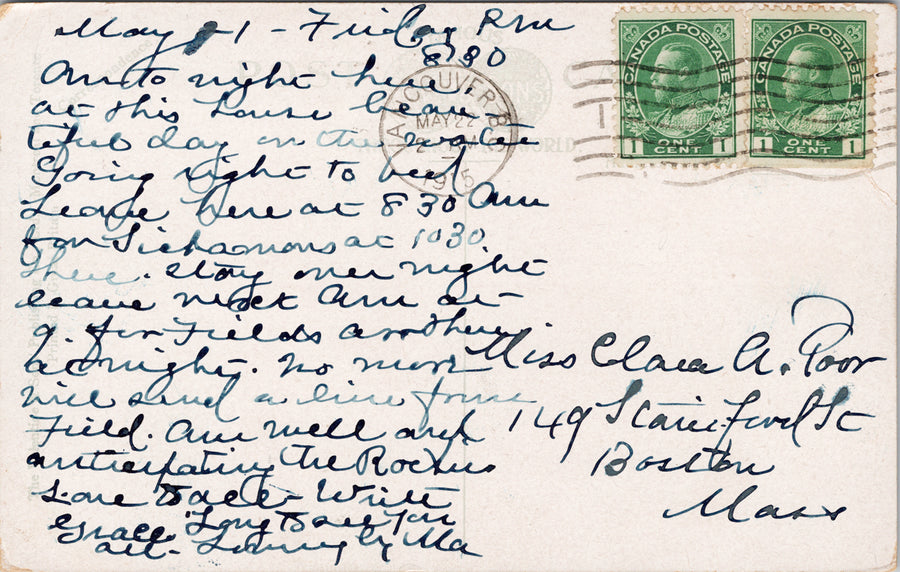 May 21 - Friday P m
8 30
Am to night here
at this house beau
tiful day on the water
Going right to bed
Leave here at 8 30 Am
for Sickamous at 10 30
there. stay over night
leave next Am at
9. for Fields another
at night. No more
will send a line from
Field. Am well and
anticipating the Rockies
Love to all - Write
Grace. Long to see you
all - Lovingly Ma
VANCOUVER B.C.
MAY 22
1915
CANADA POSTAGE
1 ONE CENT 1
CANADA POSTAGE
1 ONE CENT 1
Miss Clara A. Poor
149 Staniford St
Boston
Mass